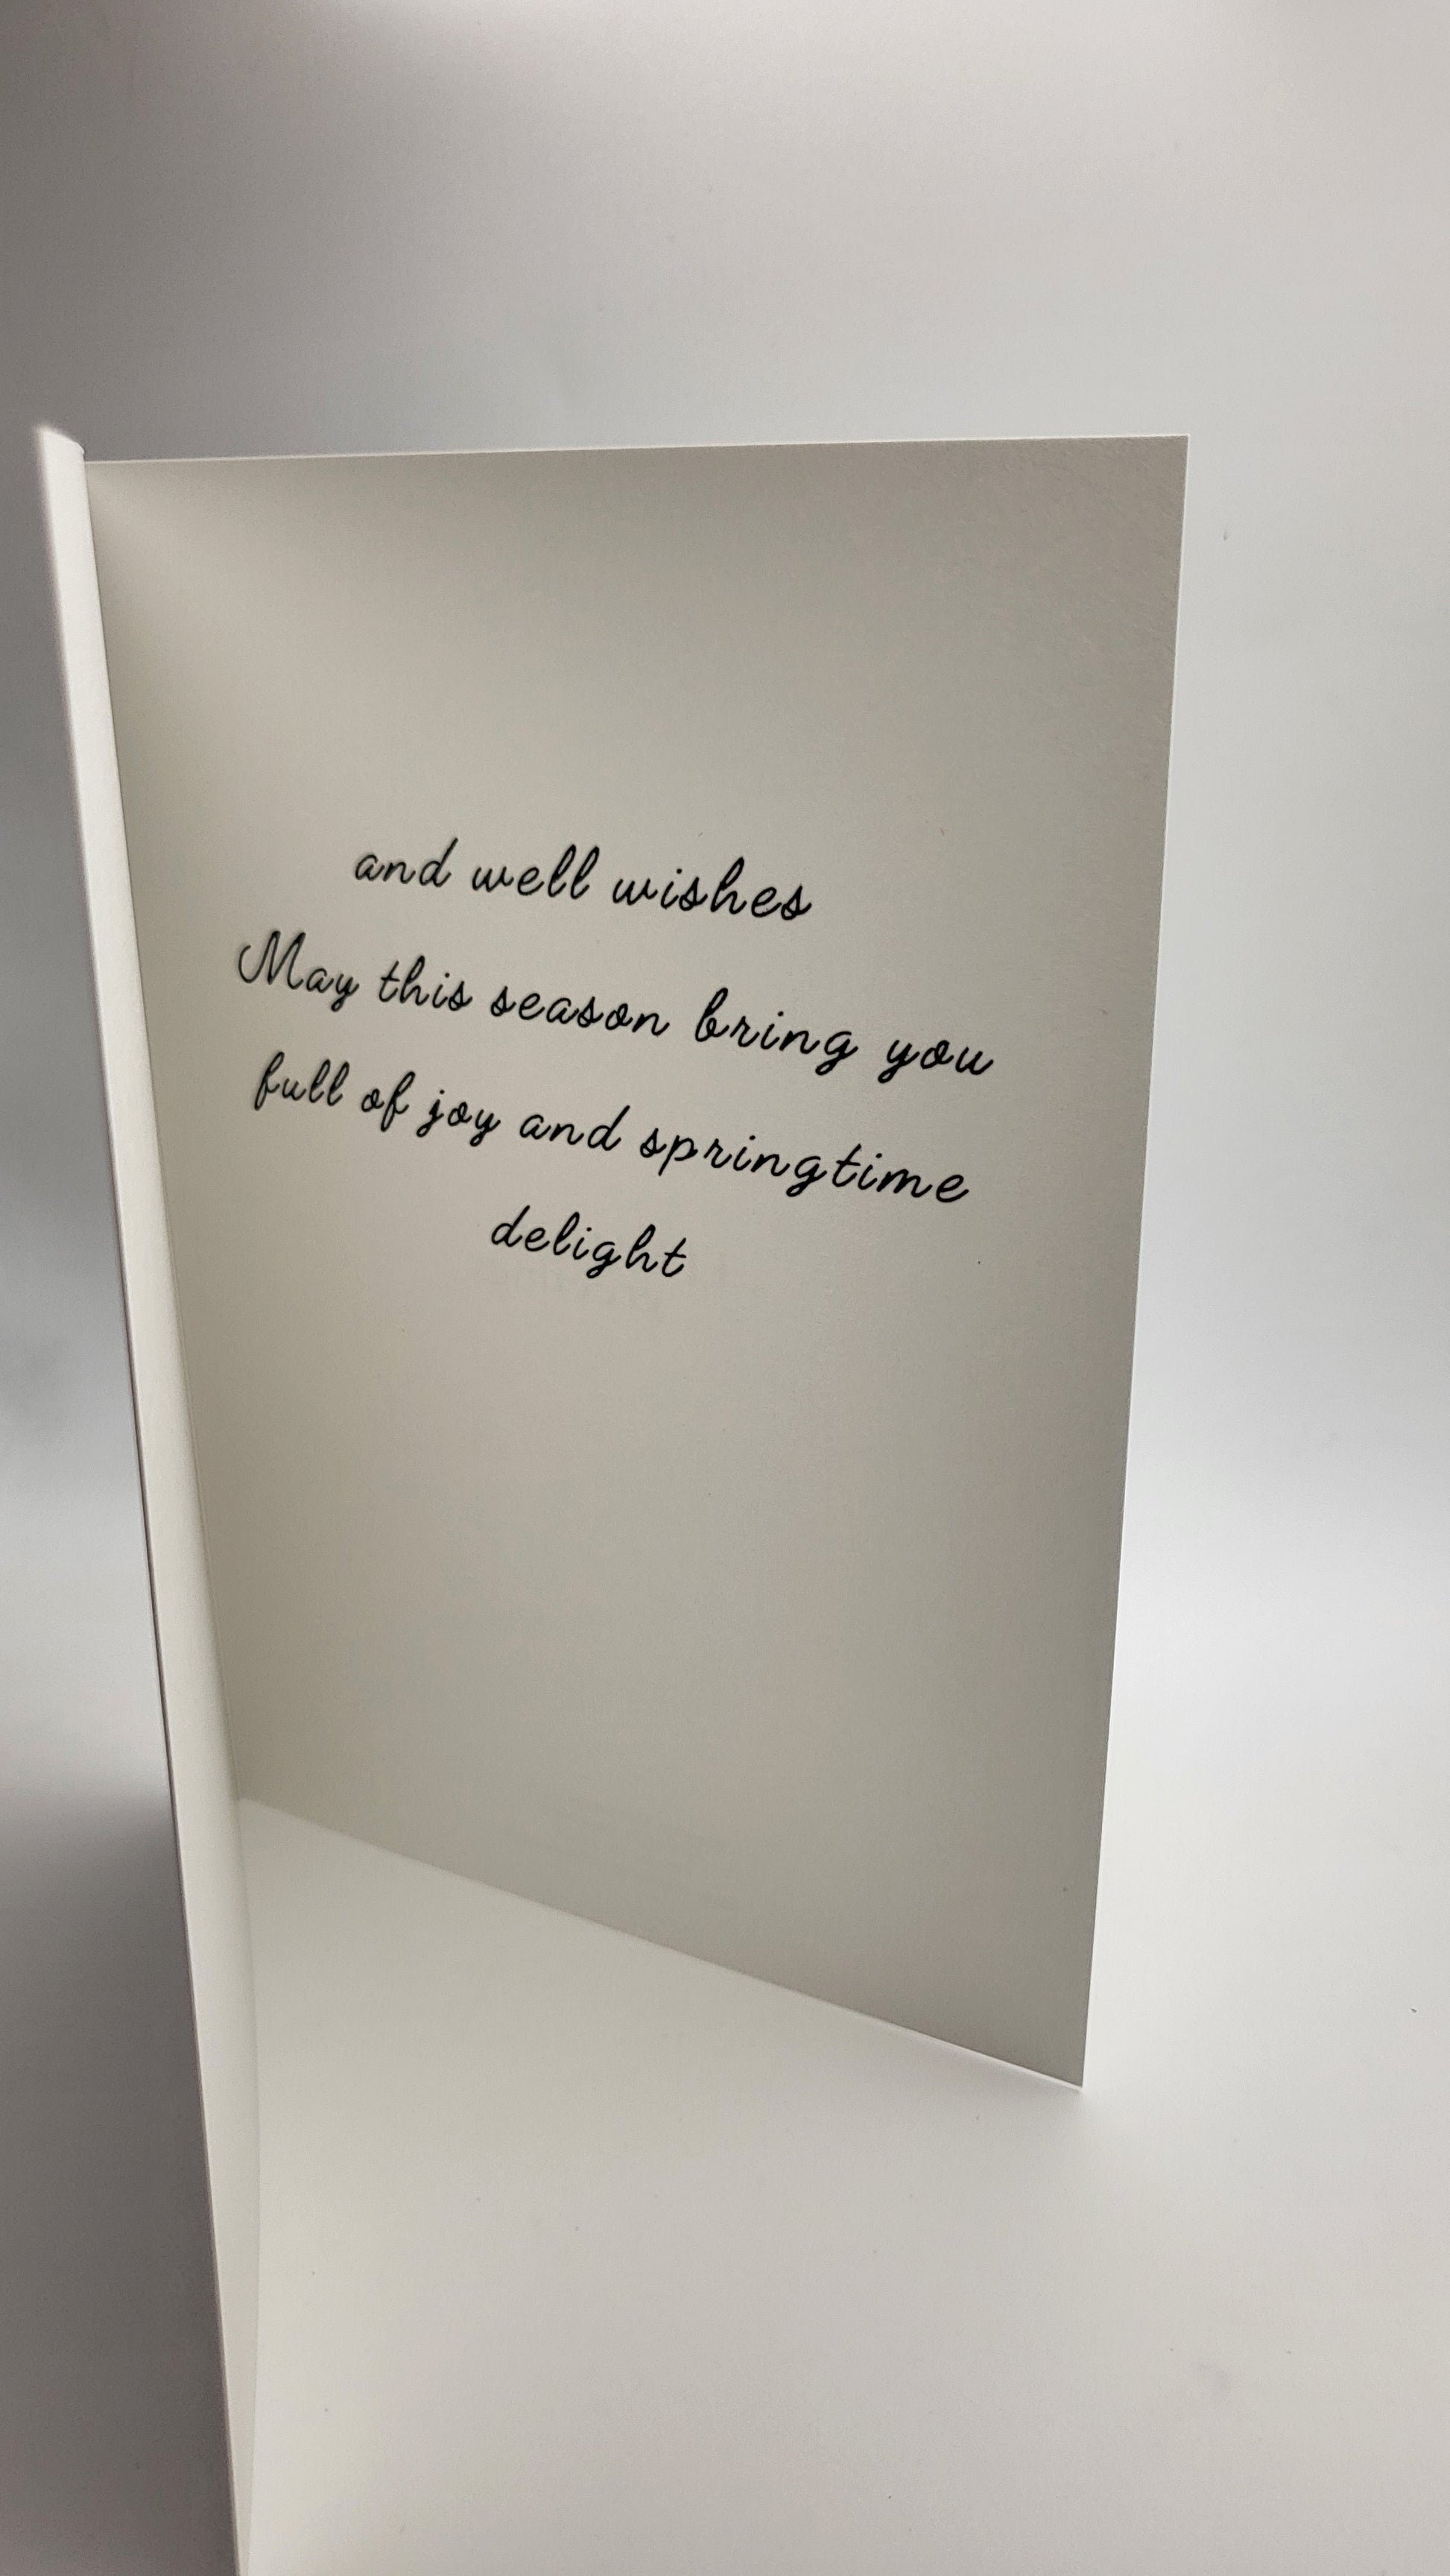 and well wishes
May this season bring you
full of joy and springtime
delight